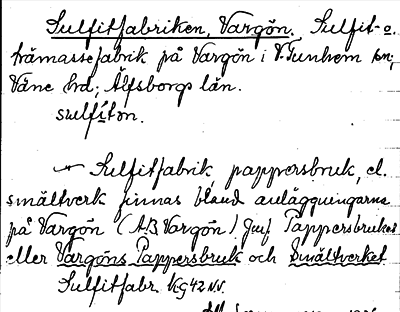 Sulfitfabriken, Vargön. Sulfit- o.
trämassefabrik på Vargön i V. Tunhem sn;
Väne hd; Älfsborgs län.
sulfíton.
Sulfitfabrik, pappersbruk, el.
smältverk finnas bland anläggningarna
på Vargön (A.B Vargön) Jmf. Pappersbruket
eller Vargöns Pappersbruk och Smältverket
Sulfitfabr. Kg 42 NV.